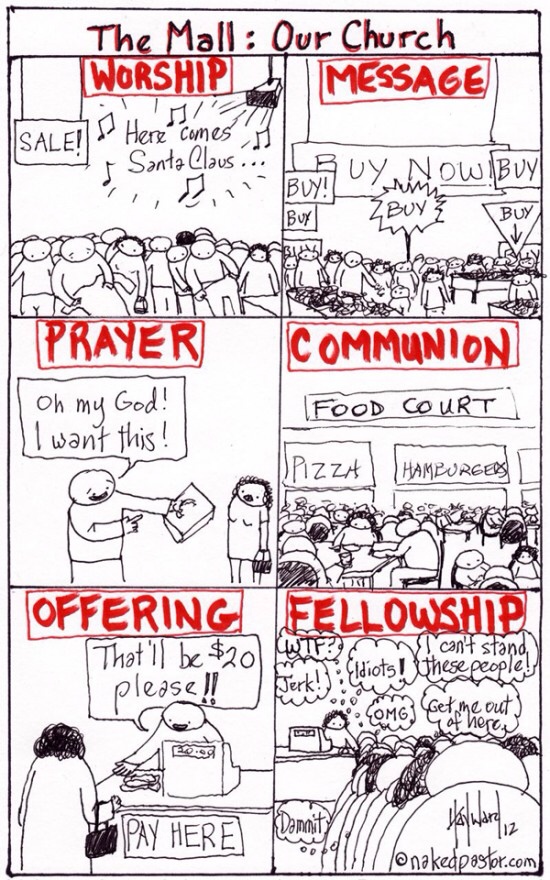 The Mall: Our Church
WORSHIP
SALE!
Here comes
Santa Claus...
MESSAGE
BUY NOW!
BUY
BUY!
BUY
BUY
BUY
PRAYER
Oh my God!
I want this!
COMMUNION
FOOD COURT
PIZZA
HAMBURGERS
OFFERING
That'll be $20
please!!
PAY HERE
FELLOWSHIP
WTF?
Jerk!
Idiots!
I can't stand
these people!
OMG
Get me out
of here.
Dammit
Hayward
12
©nakedpastor.com